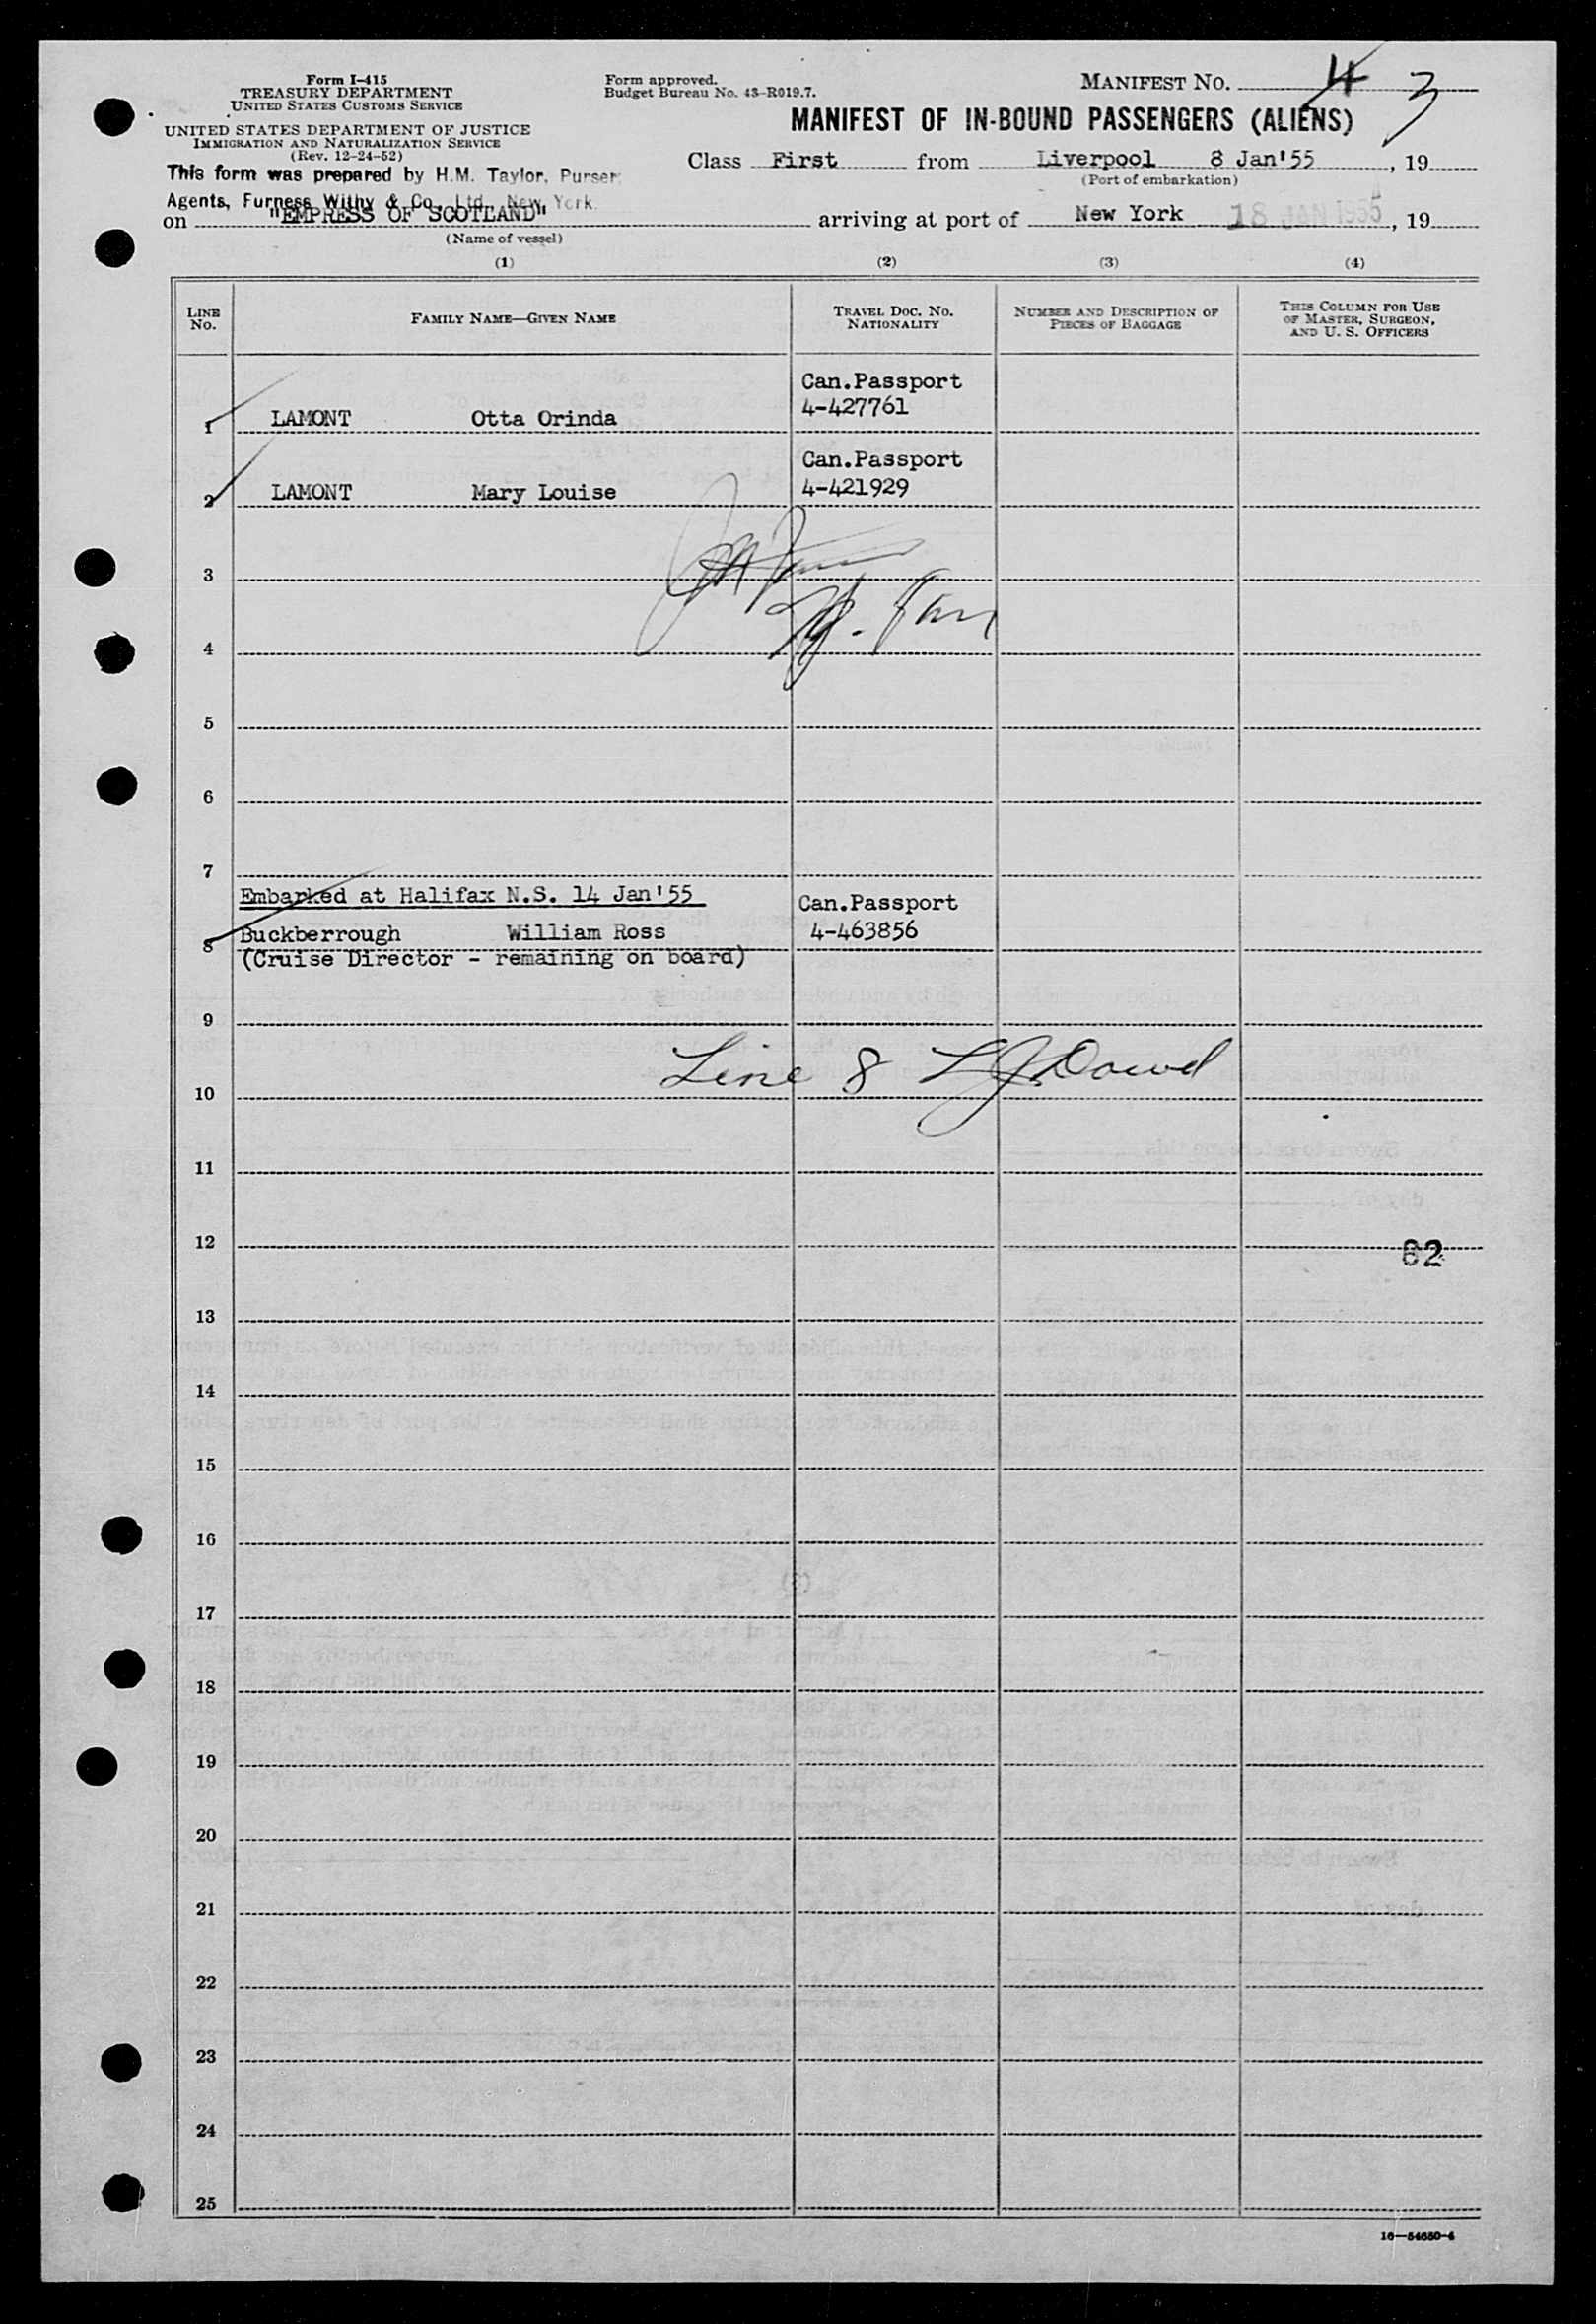 Form I-415
TREASURY DEPARTMENT
UNITED STATES CUSTOMS SERVICE
UNITED STATES DEPARTMENT OF JUSTICE
IMMIGRATION AND NATURALIZATION SERVICE
(Rev. 12-24-52)
This form was prepared by H.M. Taylor, Purser
Agents, Furness Withy & Co. Ltd. New York.
Form approved.
Budget Bureau No. 43-R019.7.
MANIFEST NO. 4 3
MANIFEST OF IN-BOUND PASSENGERS (ALIENS)
Class First from Liverpool 8 Jan'55, 19
(Port of embarkation)
on "EMPRESS OF SCOTLAND" arriving at port of New York 18 JAN 1955, 19
(Name of vessel)
(1) (2) (3) (4)
LINE NO.
FAMILY NAME—GIVEN NAME
TRAVEL DOC. NO. NATIONALITY
NUMBER AND DESCRIPTION OF PIECES OF BAGGAGE
THIS COLUMN FOR USE OF MASTER, SURGEON, AND U. S. OFFICERS
Can.Passport
1 LAMONT Otta Orinda 4-427761
Can.Passport
2 LAMONT Mary Louise 4-421929
3
4
5
6
7
Embarked at Halifax N.S. 14 Jan'55 Can.Passport
8 Buckberrough William Ross 4-463856
(Cruise Director - remaining on board)
9
Line 8 L J Dowd
10
11
12
62
13
14
15
16
17
18
19
20
21
22
23
24
25
16—54650-4